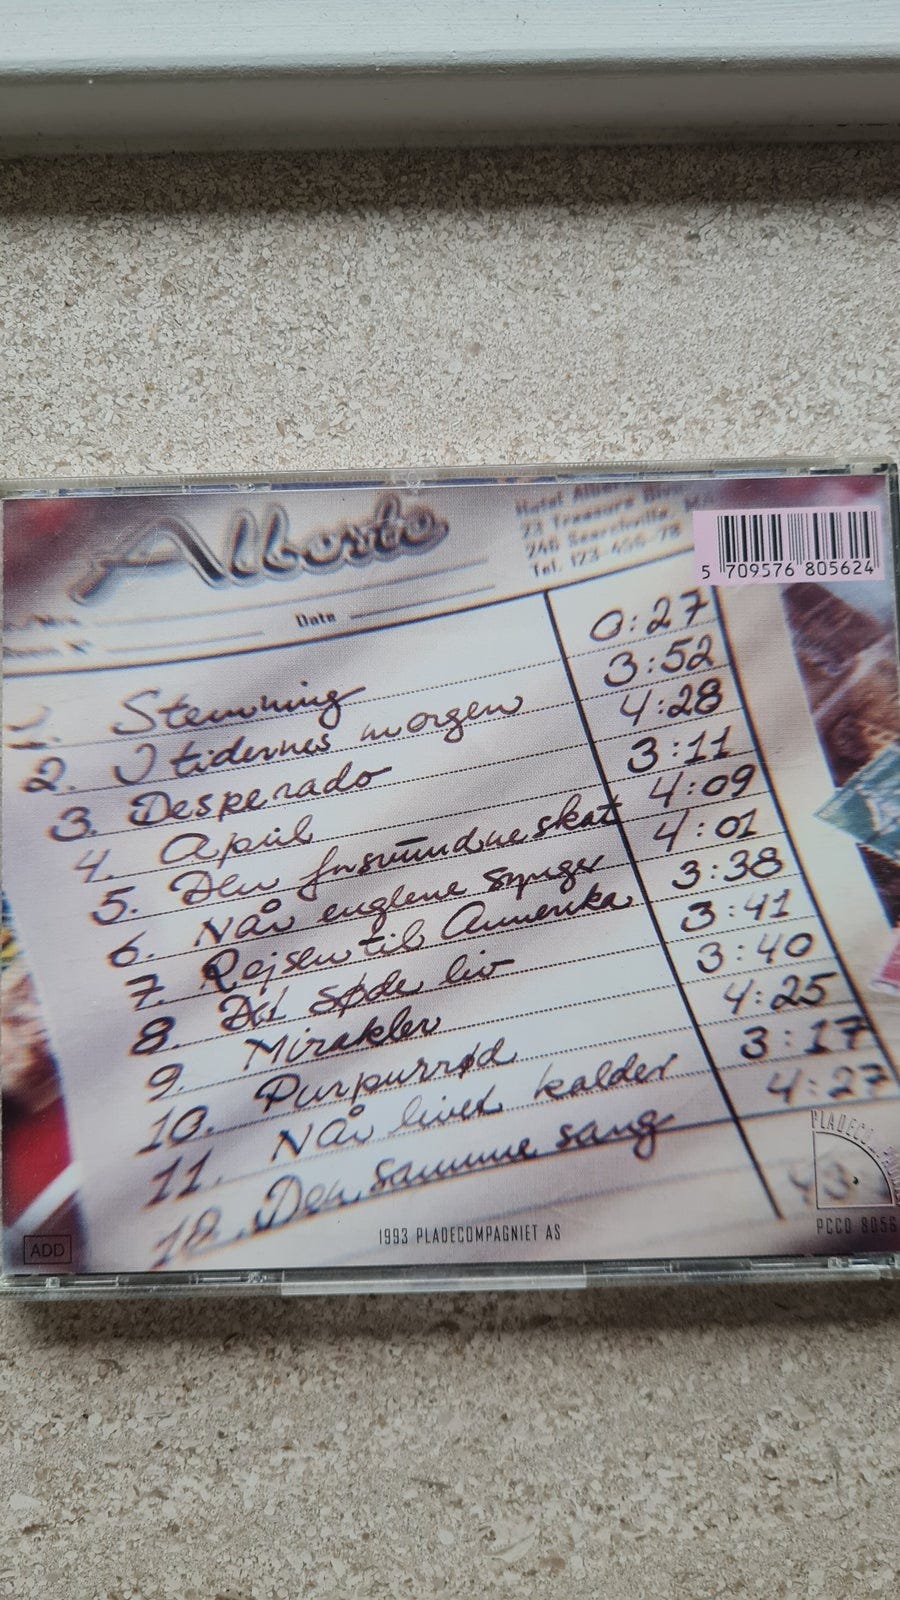 Alberto
Hotel Alberto
23 Treasure Blvd.
246 Searchville,
Tel. 123-456-78
5 709576 805624
Date
1. Stemning 0:27
2. I tidernes morgen 3:52
3. Desperado 4:28
4. April 3:11
5. Den forsvundne skat 4:09
6. Når englene synger 4:01
7. Rejsen til Amerika 3:38
8. Det søde liv 3:41
9. Mirakler 3:40
10. Purpurrød 4:25
11. Når livet kalder 3:17
12. Den samme sang 4:27
PLADECOMPAGNIET
PCCD 8056
ADD
1993 PLADECOMPAGNIET AS